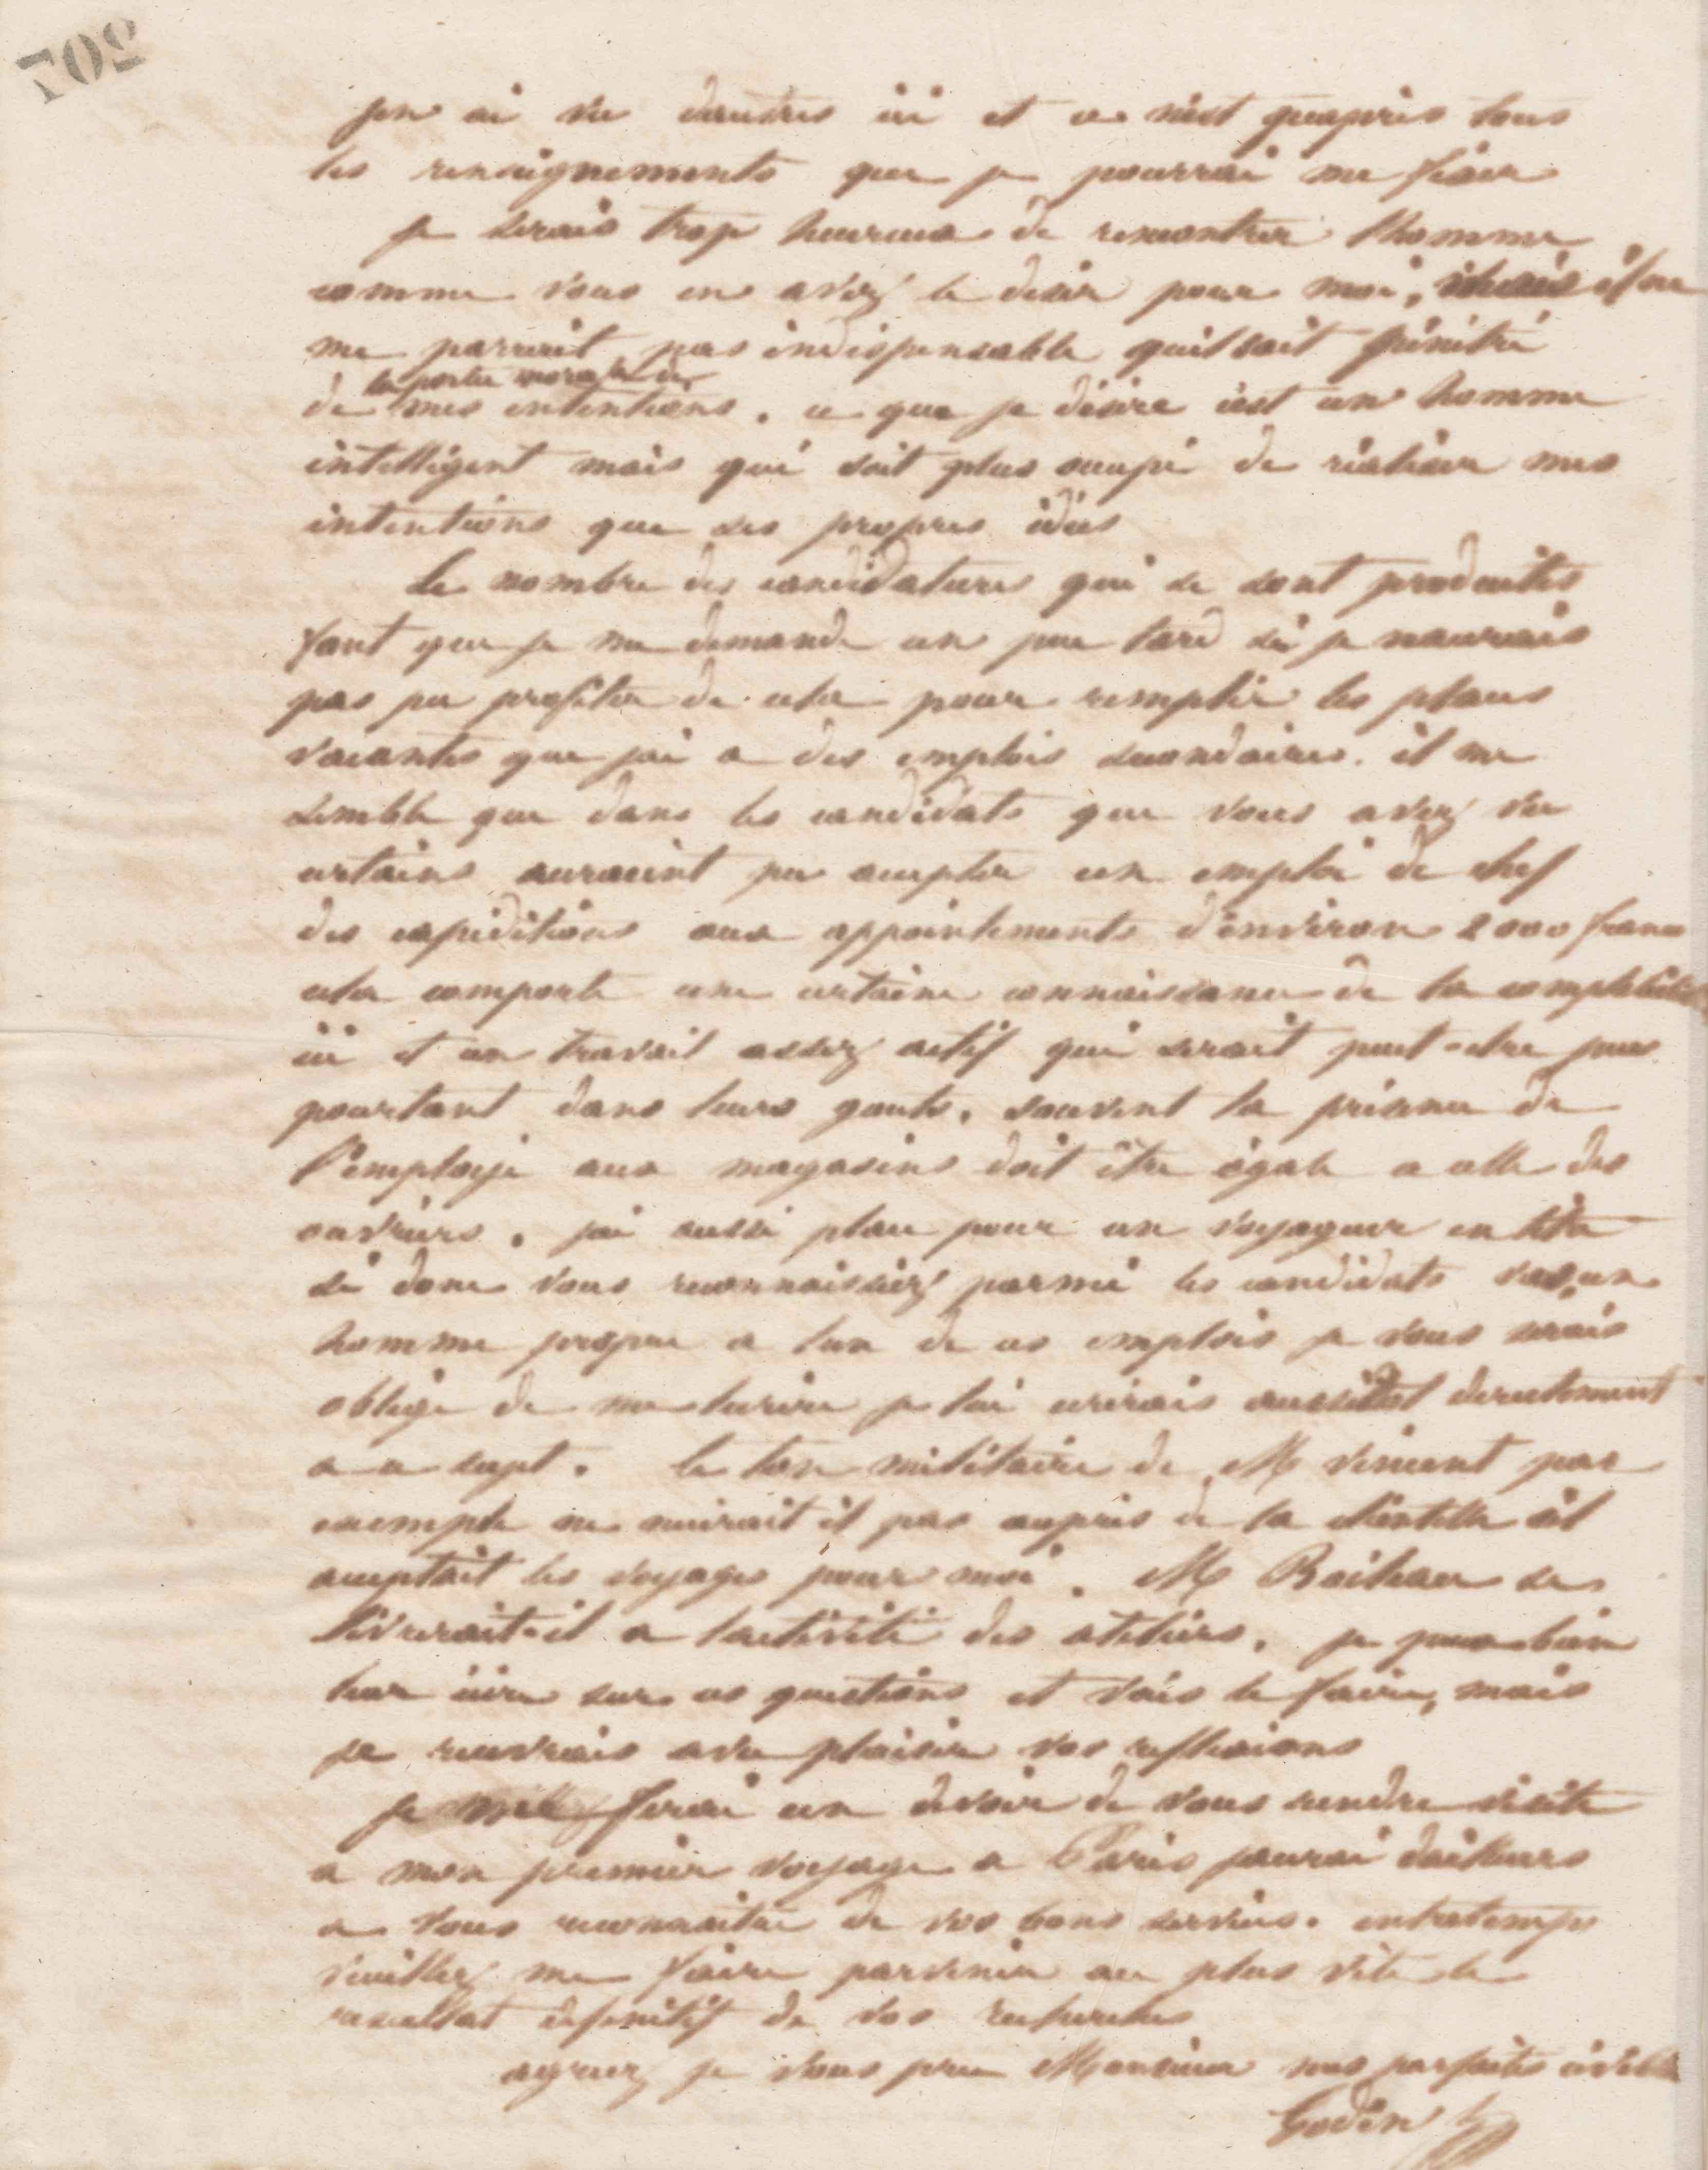 702
jen ai vu dautres ici et ce nest quapres tous
les renseignements que je pourrai me fixer
je serais trop heureux de rencontrer lhomme
comme vous en avez le desir pour moi, mais il ne
me parait pas indispensable quil soit pénétré
de la portée morale de
mes intentions. ce que je désire cest un homme
intelligent mais qui soit plus occupé de réaliser mes
intentions que ses propres idées
Le nombre des candidatures qui se sont produites
font que je me demande un peu tard si je naurais
pas pu profiter de cela pour remplir les places
vacantes que jai a des emplois secondaires. il me
semble que dans les candidats que vous avez vu
certains auraient pu accepter un emploi de chef
des expeditions aux appointements d'environ 2000 francs
cela comporte une certaine connaissance de la comptabilité
ici et un travail assez actif qui serait peut-etre peu
pourtant dans leurs gouts. souvent la présence de
l'employé aux magasins doit être égale a celle des
ouvriers. jai aussi place pour un voyageur en
si donc vous reconnaissiez parmi les candidats un
homme propre a lun de ces emplois je vous serais
obligé de me lecrire je lui ecrirais aussitot directement
a ce sujet. le ton militaire de M Vincent par
exemple ne nuirait il pas aupres de la clientelle sil
acceptait les voyages pour moi. M Boileau se
livrerait-il a lactivité des ateliers. je peux bien
leur écrire sur ces questions et vais le faire, mais
je recevrais avec plaisir vos reflexions
je me ferai un devoir de vous rendre visite
a mon premier voyage a Paris jaurai dailleurs
a vous reconnaitre de vos bons services. entretemps
veuillez me faire parvenir au plus vite le
resultat définitif de vos recherches
agreez je vous prie Monsieur mes parfaites civilités
Godin